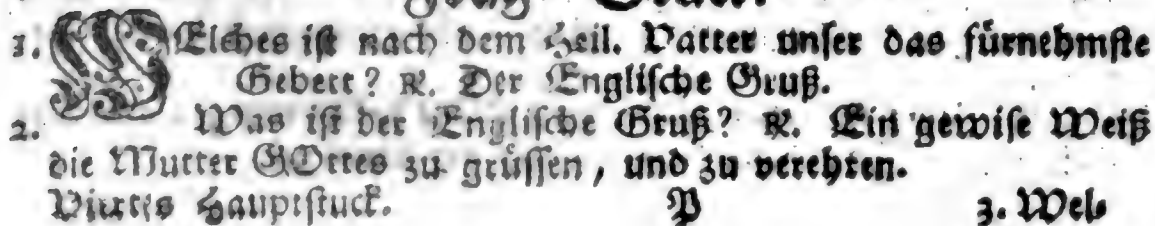 1. WElches ist nach dem Heil. Vatter unser das fürnehmste
Gebett? R. Der Englische Gruß.
2. Was ist der Englische Gruß? R. Ein gewise Weiß
die Mutter GOttes zu grüssen, und zu verehren.
Viertes Hauptstuck. P 3. Wel-